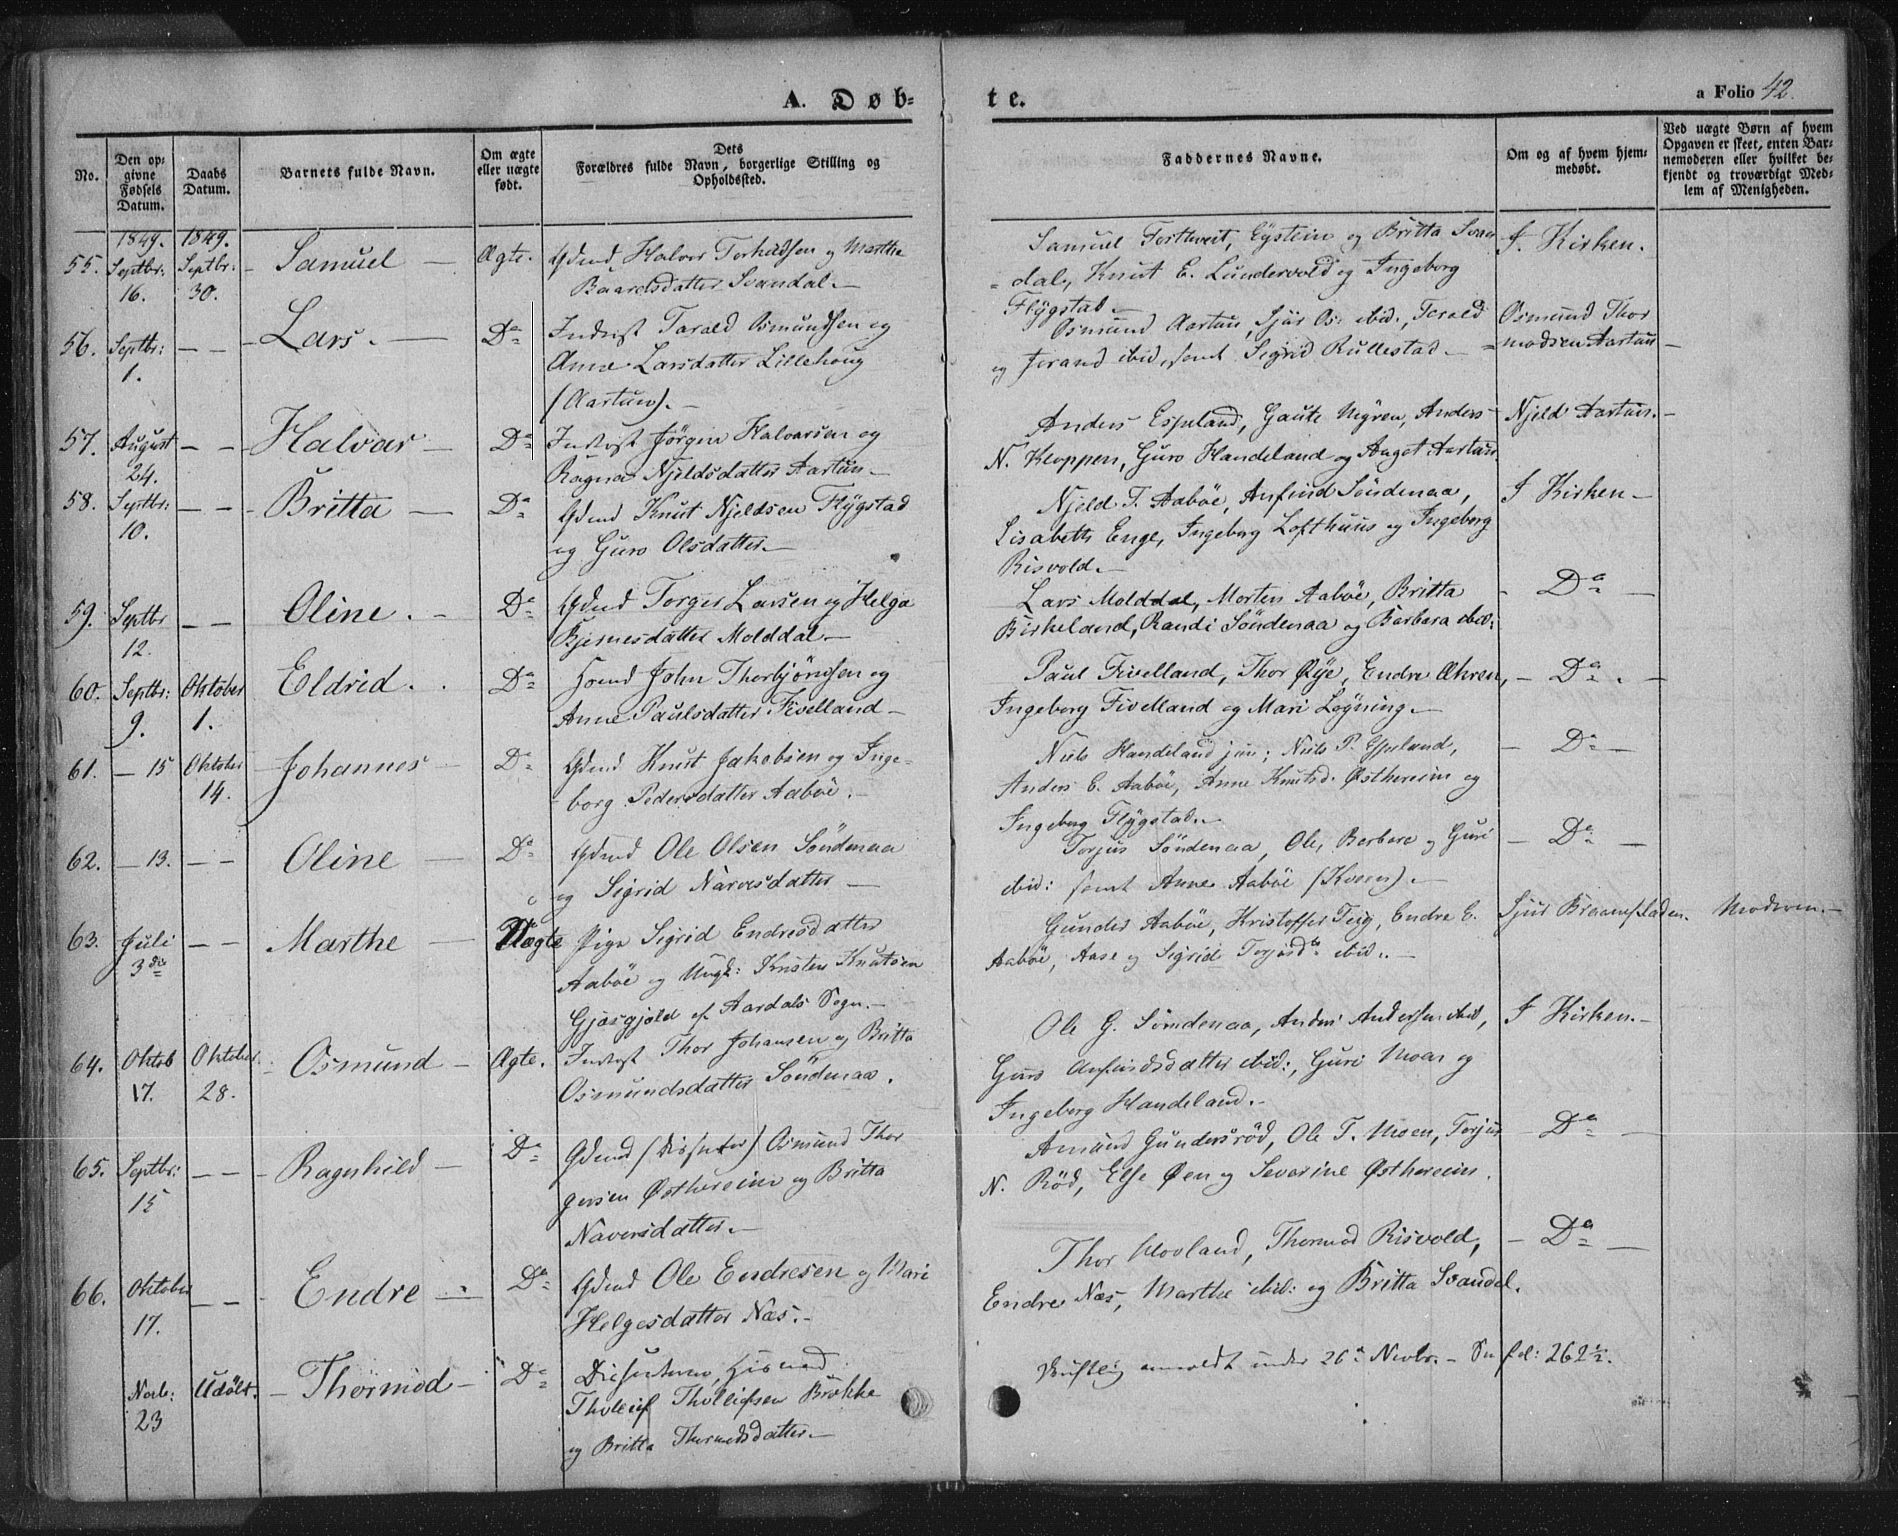 A. Døb-
te.
a Folio 42.
No.
Den op-
givne
Fødsels
Datum.
Daabs
Datum.
Barnets fulde Navn.
Om ægte
eller uægte
født.
Dets
Forældres fulde Navn, borgerlige Stilling og
Opholdssted.
Faddernes Navne.
Om og af hvem hjem-
medøbt.
Ved uægte Børn af hvem
Opgaven er skeet, enten Bar-
nemoderen eller hvilket be-
kjendt og troværdigt Med-
lem af Menigheden.
1849. 1849.
55. Septbr: Septbr: - Samuel - Ægte. Gdmd Halvor Torkildsen og Marthe
16. 30. Baardsdatter Svandal. -
Samuel Forthveit, Eystein og Britta Svan I Kirken.
dal, Knut E. Lundervold og Ingeborg
Flÿgstad. -
56. Septbr: - - - Lars. - Do Inderst Tarald Osmundsen og
1. Anne Larsdatter Lillehoug
(Aartun). -
Osmund Aartun, Sjur Os: ibid., Torald Osmund Thor
og ibid, samt Sigrid Rullestad. - modsen Aartun -
57. August - - Halvar - Do Inderst Jörgen Halvarsen og
24. Ragna Njeldsdatter Aartun. -
Anders Espeland, Gaute Nÿren, Anders Njeld Aartun. -
N. Kloppen, Guro Handeland og Aaget Aartun
58. Septbr: - - - Britta - Do Gdmd Knut Njeldsen Flÿgstad
10. og Guro Olsdatter. -
Njeld T. Aaböe, Anfind Söndenaa, I Kirken -
Lisabeth Enge, Ingeborg Lofthuus og Ingeborg
Risvold. -
59. Septbr - - Oline. - Do Gdmd Torger Larsen og Helga
12. Bjernesdatter Molddal. -
Lars Molddal, Morten Aaböe, Britta - Do -
Birkeland, Randi Söndenaa og Barbara ibid:
60. Septbr: Oktober Eldrid. . Do Hsmd John Thorbjörnsen og
9. 1. Anne Paulsdatter Fivelland -
Paul Fivelland, Thor Øÿe, Endre Æhren, - Do . -
Ingeborg Fivelland og Mari Løÿning. -
61. - 15 Oktober - Johannes - Do Gdmd Knut Jakobsen og Inge-
14. borg Pedersdatter Aaböe. -
Niels Handeland jun; Niels P. Espeland, - Do -
Anders E. Aaböe, Anne Knutsd. Østhereim og
Ingeborg Flÿgstad. -
62. - 13. - - Oline - Do Gdmd Ole Olsen Söndenaa
og Sigrid Narvesdatter -
Torjus Söndenaa, Ole, Berbere og Guri - Do -
ibid: samt Anne Aaböe (Kveen). -
63. Juli - - Marthe - Uægte Pige Sigrid Endresdatter
3die Aaböe og Ungk: Kristen Knutsen
Gjøsgjæld af Aardals Sogn. -
Gunder Aaböe, Kristoffer Teig, Endre E. Sjur Braamfladen. Moderen. -
Aaböe, Aase og Sigrid Torjusd ibid. . -
64. Oktob Oktober. - Osmund - Ægte. Inderst Thor Johansen og Britta
17. 28. Osmundsdatter Söndenaa.
Ole G. Söndenaa, Anders Andersen ibid, I Kirken. -
Guro Anfindsdatter ibid:, Guri Moen og
Ingeborg Handeland. -
65. Septbr: - - - Ragnhild - Do Gdmd (Dissenter) Osmund Thor
15 gersen Østhereim og Britta
Naversdatter. -
Amund Gundersröd, Ole T. Moen, Torjus - Do -
N. Röd, Else Øen og Severine Østhereim.
66. Oktober - - - Endre - Do Gdmd Ole Endresen og Mari
17. Helgesdatter Næs. -
Thor Hovland, Thormod Risvold, - Do -
Endre Næs, Marthe ibid: og Britta Svandal.
Novb: Udöbt. - Thormod - Do Dissenteren, Husmand
23 Tholeif Tholleifsen Brakke
og Britta Thormodsdatter. -
Skriftlig anmeldt under 26de Novbr. - Se fol: 262